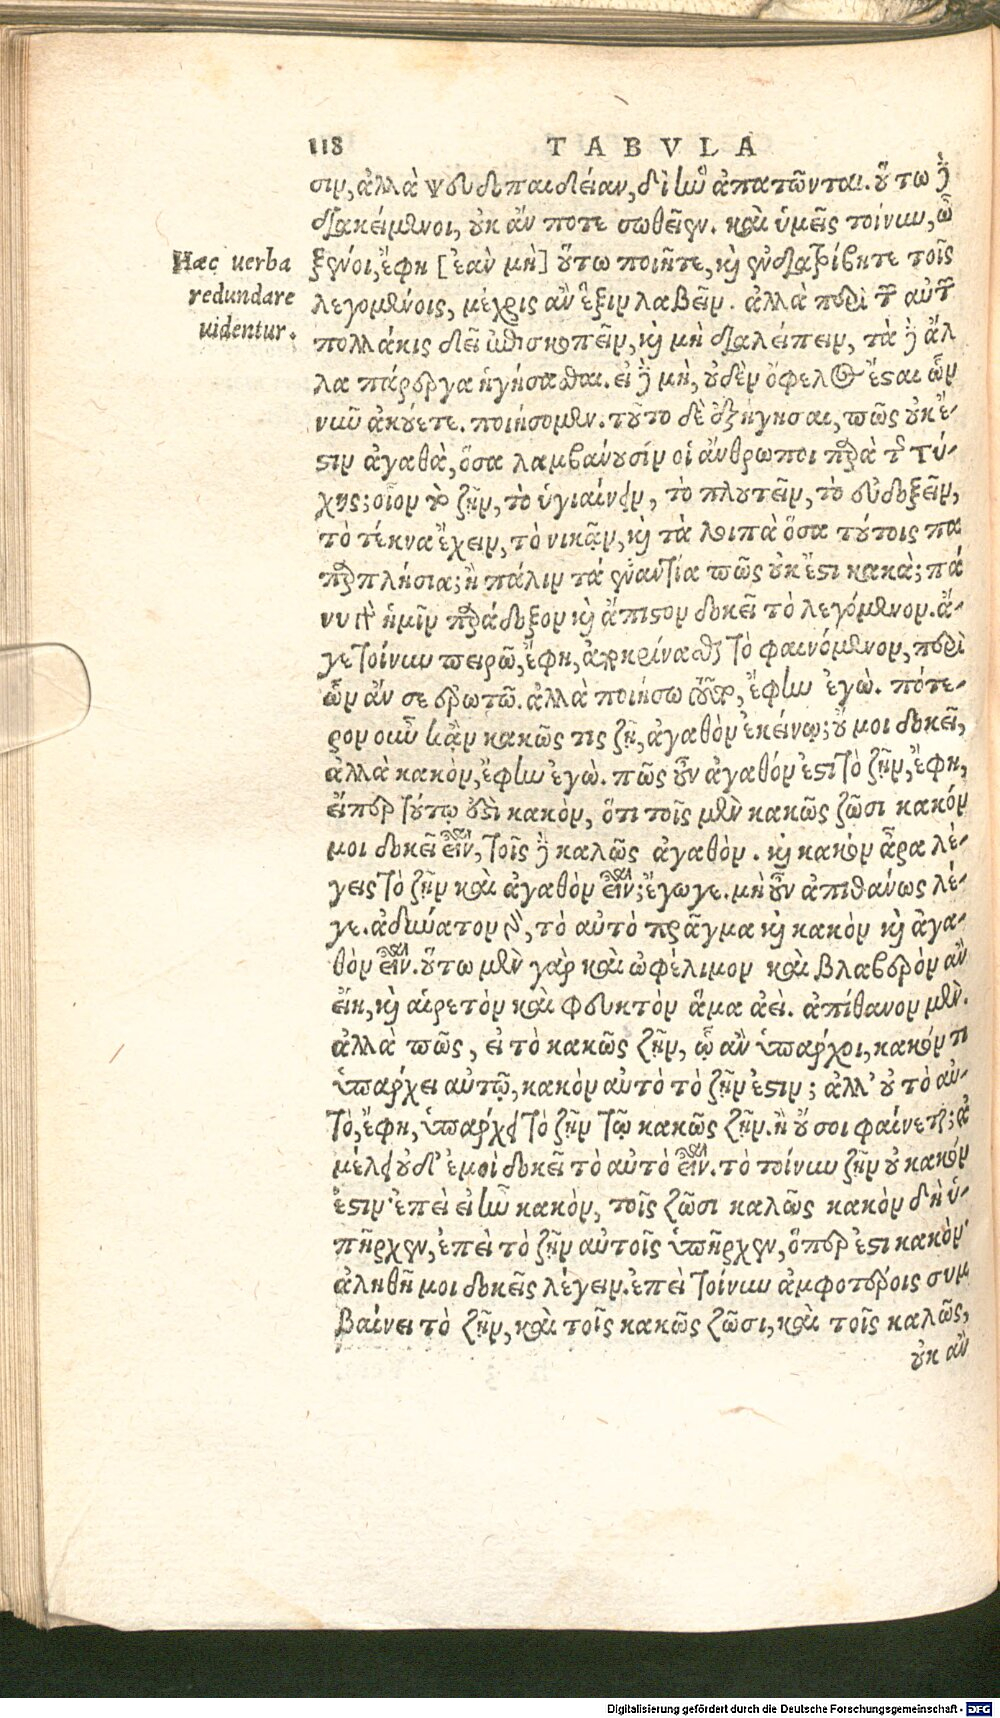 118 TABVLA
σιν, ἀλλὰ ψευδοπαιδείαν, δι' ἣν ἀπατῶνται. οὕτω δὲ
διακείμενοι, οὐκ ἄν ποτε σωθεῖεν. καὶ ὑμεῖς τοίνυν, ὦ
Hæc uerba
redundare
uidentur.
ξένοι, ἔφη [ἐὰν μὴ] οὕτω ποιῆτε, καὶ ἐνδιατρίβητε τοῖς
λεγομένοις, μέχρις ἂν ἕξιν λαβεῖν. ἀλλὰ περὶ τῶν αὐτῶν
πολλάκις δεῖ ἐπισκοπεῖν, καὶ μὴ διαλείπειν, τὰ δὲ ἄλ
λα πάρεργα ἡγήσασθαι. εἰ δὲ μὴ, οὐδὲν ὄφελος ἔσται ὧν
νῦν ἀκούετε. ποιήσομεν. τοῦτο δὲ ἐξήγησαι, πῶς οὐκ ἔ-
στιν ἀγαθὰ, ὅσα λαμβάνουσιν οἱ ἄνθρωποι παρὰ τῆς τύ-
χης; οἷον τὸ ζῆν, τὸ ὑγιαίνειν, τὸ πλουτεῖν, τὸ εὐδοξεῖν,
τὸ τέκνα ἔχειν, τὸ νικᾷν, καὶ τὰ λοιπὰ ὅσα τούτοις πα
ραπλήσια; ἢ πάλιν τὰ ἐναντία πῶς οὐκ ἔστι κακὰ; πά
νυ γὰρ ἡμῖν παράδοξον καὶ ἄπιστον δοκεῖ τὸ λεγόμενον. ἄ-
γε τοίνυν πειρῶ, ἔφη, ἀποκρίνασθαι τὸ φαινόμενον, περὶ
ὧν ἄν σε ἐρωτῶ. ἀλλὰ ποιήσω τοῦτο, ἔφην ἐγὼ. πότε-
ρον οὖν κἂν κακῶς τις ζῇ, ἀγαθὸν ἐκείνῳ; οὔ μοι δοκεῖ,
ἀλλὰ κακὸν, ἔφην ἐγὼ. πῶς οὖν ἀγαθόν ἐστι τὸ ζῆν, ἔφη,
εἴπερ τούτῳ ἐστὶ κακὸν, ὅτι τοῖς μὲν κακῶς ζῶσι κακόν
μοι δοκεῖ εἶναι, τοῖς δὲ καλῶς ἀγαθὸν. καὶ κακὸν ἄρα λέ-
γεις τὸ ζῆν καὶ ἀγαθὸν εἶναι; ἔγωγε. μὴ οὖν ἀπιθάνως λέ-
γε. ἀδύνατον γὰρ, τὸ αὐτὸ πρᾶγμα καὶ κακὸν καὶ ἀγα-
θὸν εἶναι. οὕτω μὲν γὰρ καὶ ὠφέλιμον καὶ βλαβερὸν ἂν
εἴη, καὶ αἱρετὸν καὶ φευκτὸν ἅμα ἀεὶ. ἀπίθανον μὲν.
ἀλλὰ πῶς, εἰ τὸ κακῶς ζῆν, ᾧ ἂν ὑπάρχοι, κακόν τι
ὑπάρχει αὐτῷ, κακὸν αὐτὸ τὸ ζῆν ἐστιν; ἀλλ' οὐ τὸ αὐ-
τὸ, ἔφη, ὑπάρχει τὸ ζῆν τῷ κακῶς ζῆν. ἢ οὔ σοι φαίνεται; ἀ
μέλει οὐδ' ἐμοὶ δοκεῖ τὸ αὐτὸ εἶναι. τὸ τοίνυν ζῆν οὐ κακόν
ἐστιν· ἐπεὶ εἰ ἦν κακὸν, τοῖς ζῶσι καλῶς κακὸν δὴ ὑ-
πῆρχεν, ἐπεὶ τὸ ζῆν αὐτοῖς ὑπῆρχεν, ὅπερ ἐστι κακὸν·
ἀληθῆ μοι δοκεῖς λέγειν. ἐπεὶ τοίνυν ἀμφοτέροις συμ
βαίνει τὸ ζῆν, καὶ τοῖς κακῶς ζῶσι, καὶ τοῖς καλῶς,
οὐκ ἂν
Digitalisierung gefördert durch die Deutsche Forschungsgemeinschaft - DFG